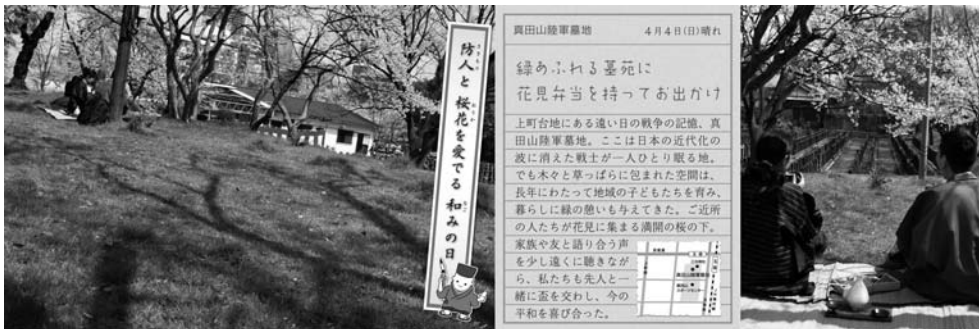 防人と 桜花を愛でる 和みの日
真田山陸軍墓地
4月4日(日)晴れ
緑あふれる墓苑に
花見弁当を持ってお出かけ
上町台地にある遠い日の戦争の記憶、真
田山陸軍墓地。ここは日本の近代化の
波に消えた戦士が一人ひとり眠る地。
でも木々と草っぱらに包まれた空間は、
長年にわたって地域の子どもたちを育み、
暮らしに緑の憩いも与えてきた。ご近所
の人たちが花見に集まる満開の桜の下。
家族や友と語り合う声
を少し遠くに聴きなが
ら、私たちも先人と一
緒に盃を交わし、今の
平和を喜び合った。
真田山陸軍墓地